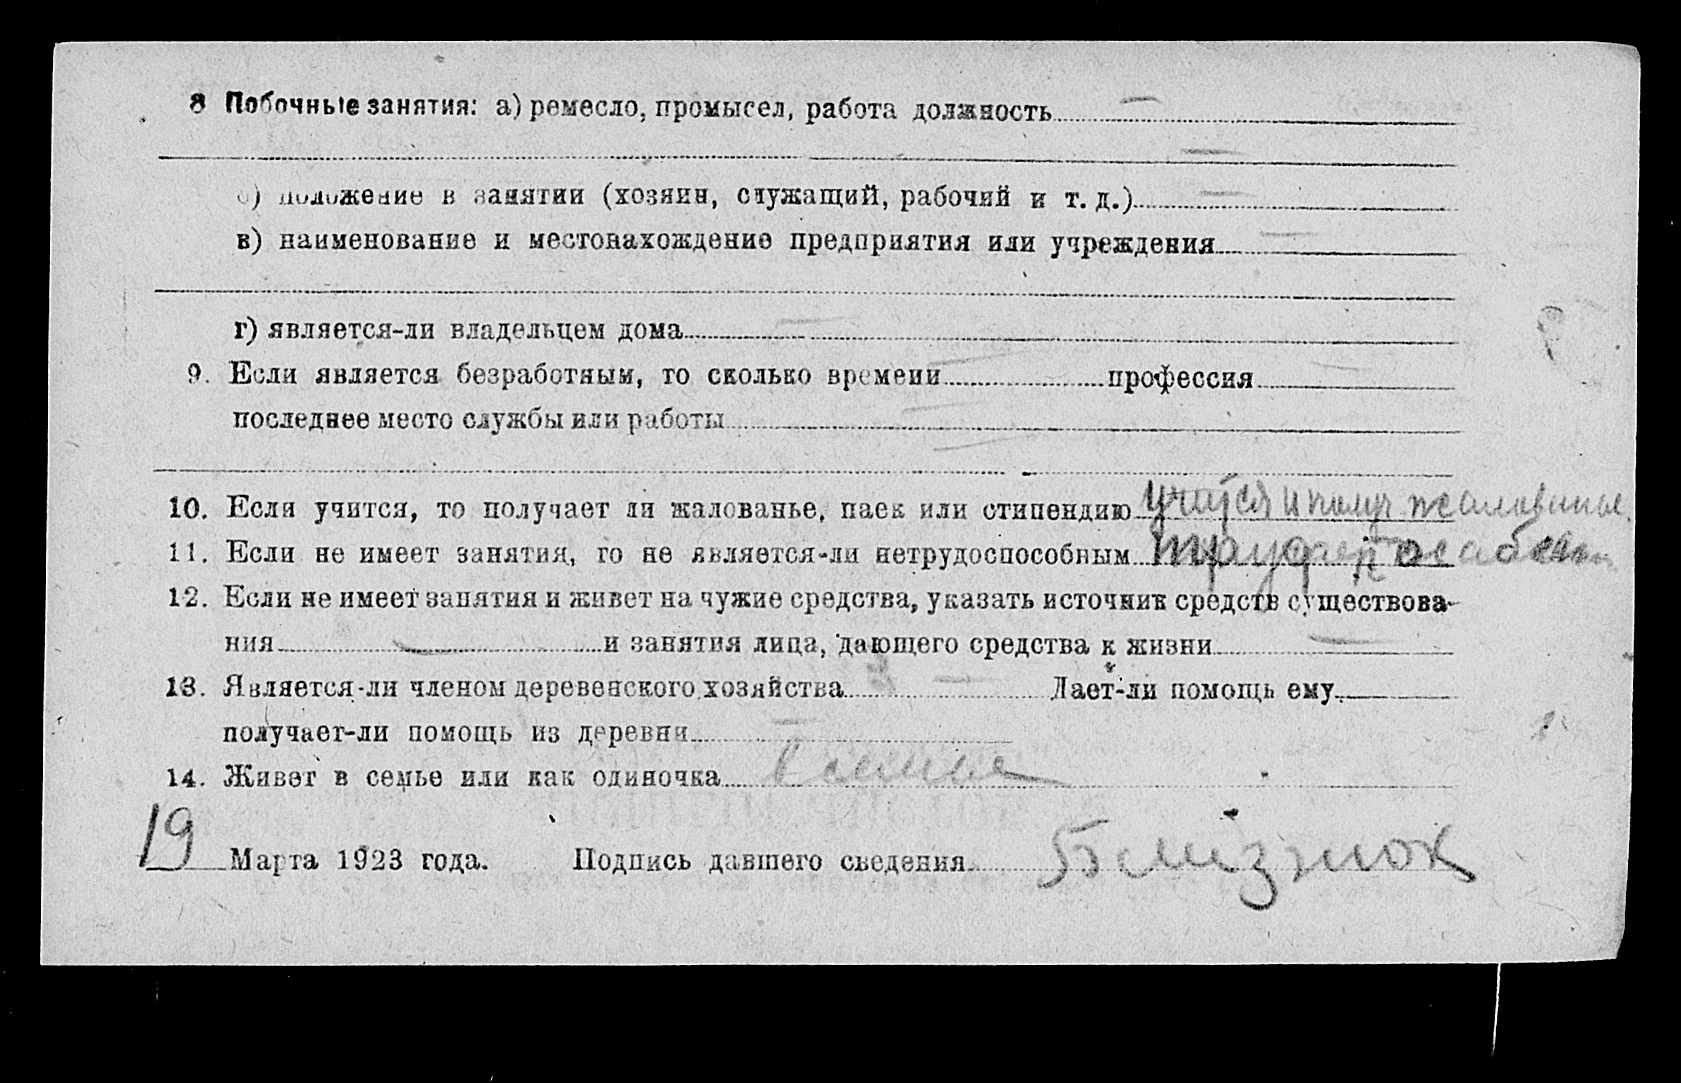 8 Побочные занятия: а) ремесло, промысел, работа должность —
—
б) положение в занятии (хозяин, служащий, рабочий и т. д.) —
в) наименование и местонахождение предприятия или учреждения —
г) является-ли владельцем дома —
9. Если является безработным, то сколько времени — профессия
последнее место службы или работы —
10. Если учится, то получает ли жалованье, паек или стипендию учится и получ жалованье
11. Если не имеет занятия, то не является-ли нетрудоспособным
12. Если не имеет занятия и живет на чужие средства, указать источник средств существова-
ния — и занятия лица, дающего средства к жизни —
13. Является-ли членом деревенского хозяйства — Дает-ли помощь ему
получает-ли помощь из деревни —
14. Живет в семье или как одиночка в семье
19 Марта 1923 года. Подпись давшего сведения